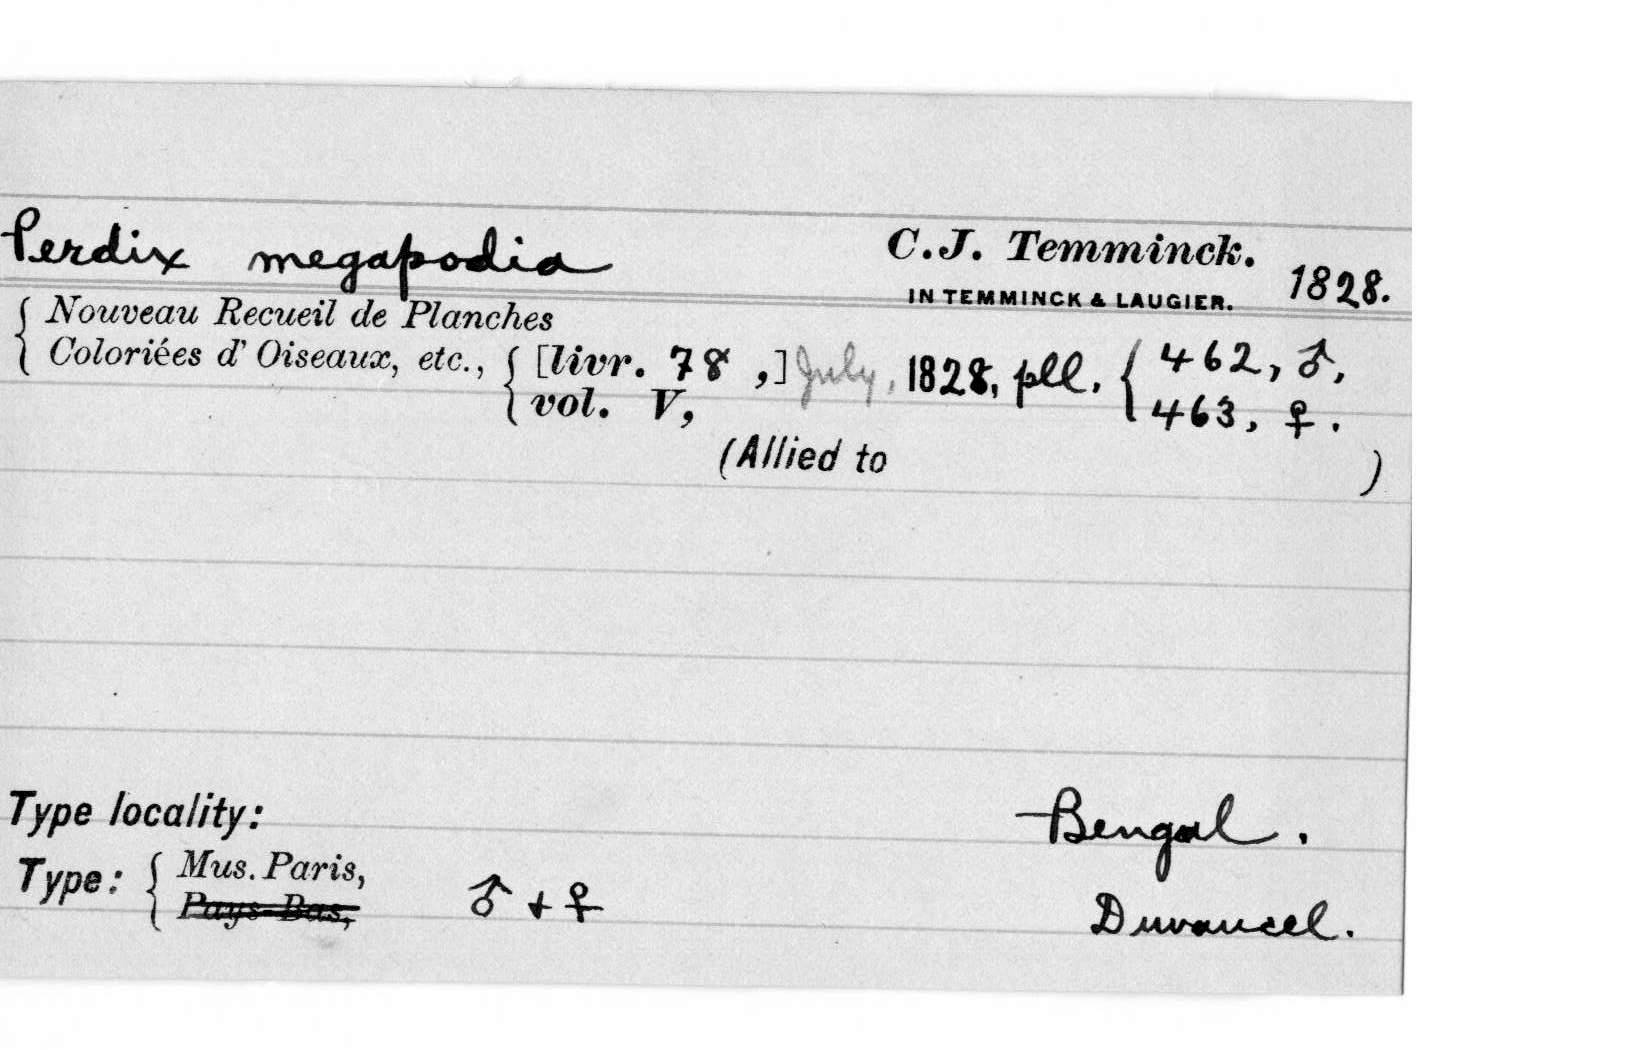 Perdix megapodia C.J. Temminck.
IN TEMMINCK & LAUGIER. 1828.
{ Nouveau Recueil de Planches
Coloriées d' Oiseaux, etc., { [livr. 78 ,] July, 1828, pll. { 462, ♂,
vol. V, 463, ♀.
(Allied to )
Type locality: Bengal.
Type: { Mus. Paris, ♂ + ♀ Duvaucel.
Pays-Bas,